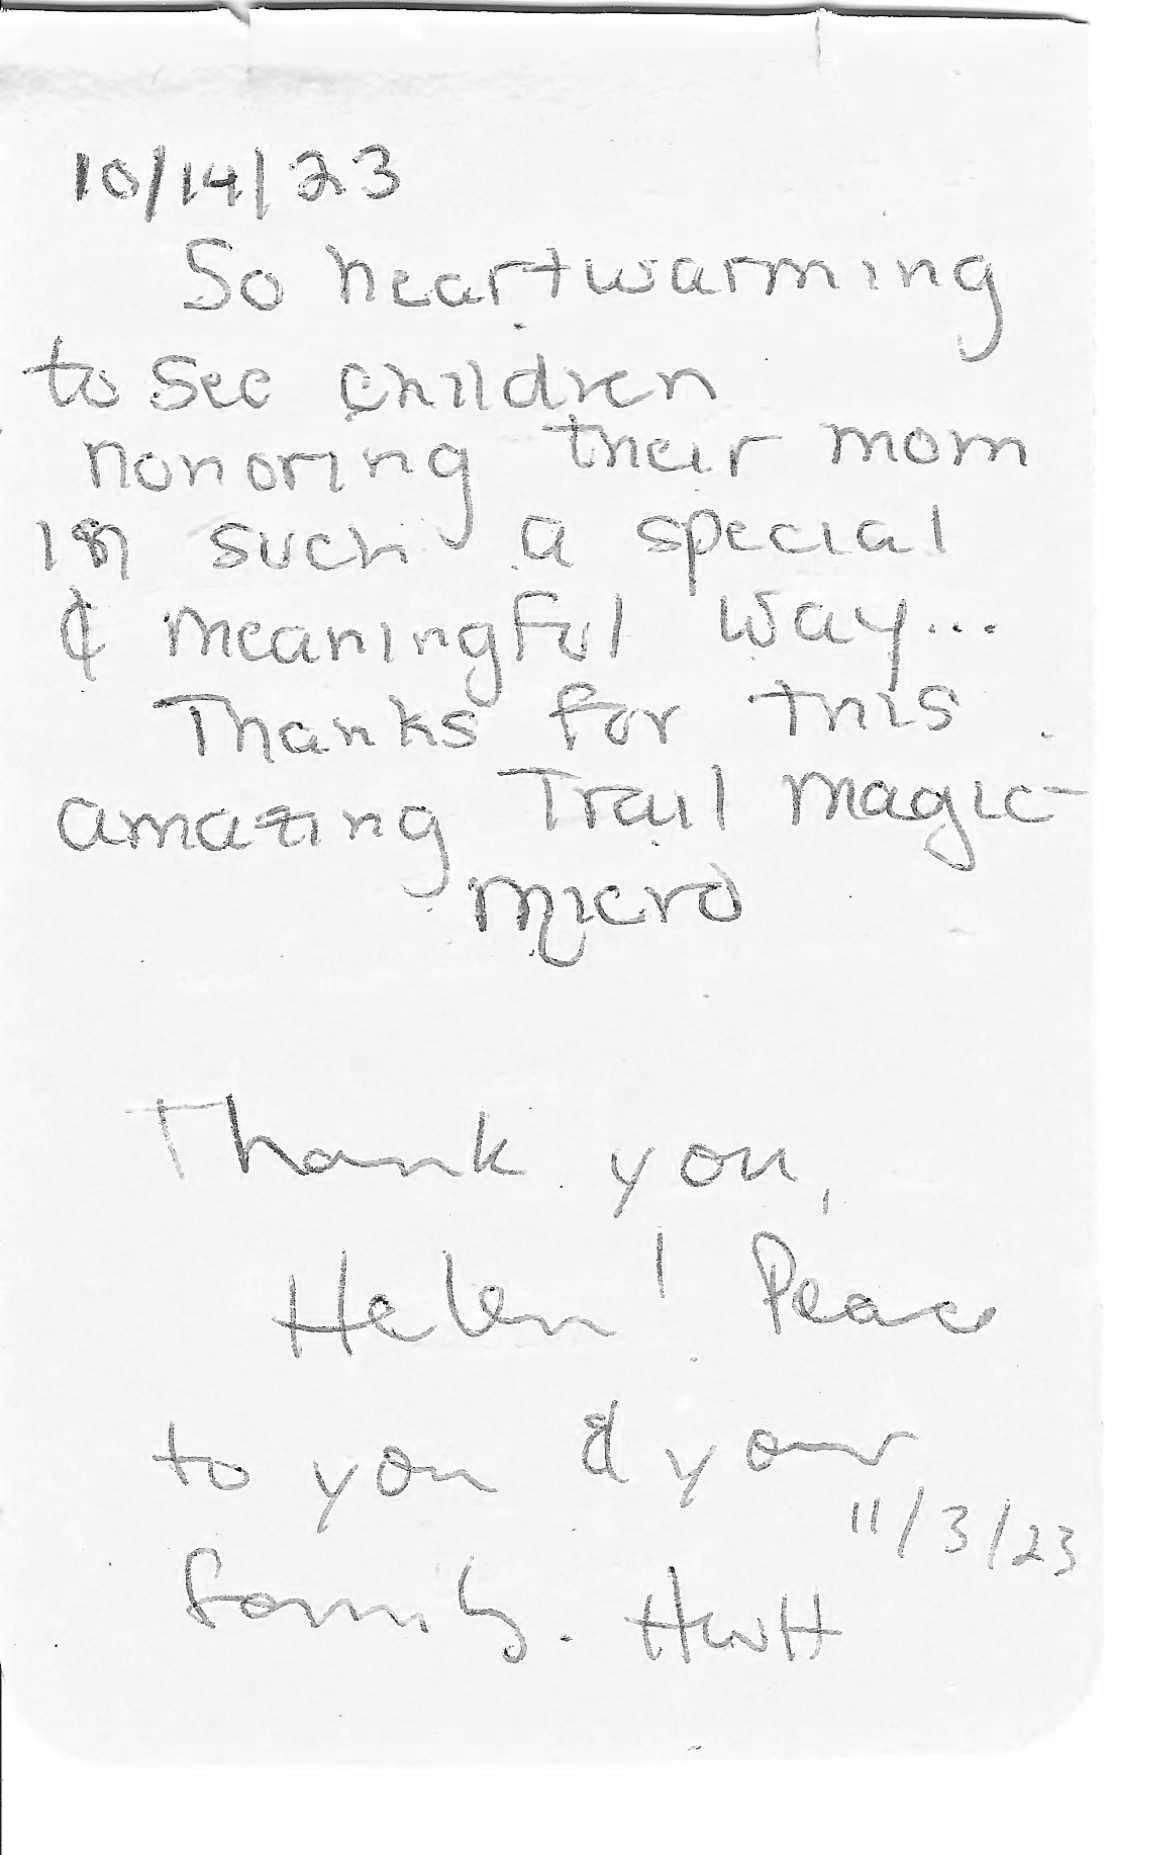 10/14/23
So heartwarming
to see children
honoring their mom
in such a special
& meaningful way...
Thanks for this
amazing Trail magic-
micro
Thank you,
Helen! Peace
to you & your
11/3/23
family. HWH